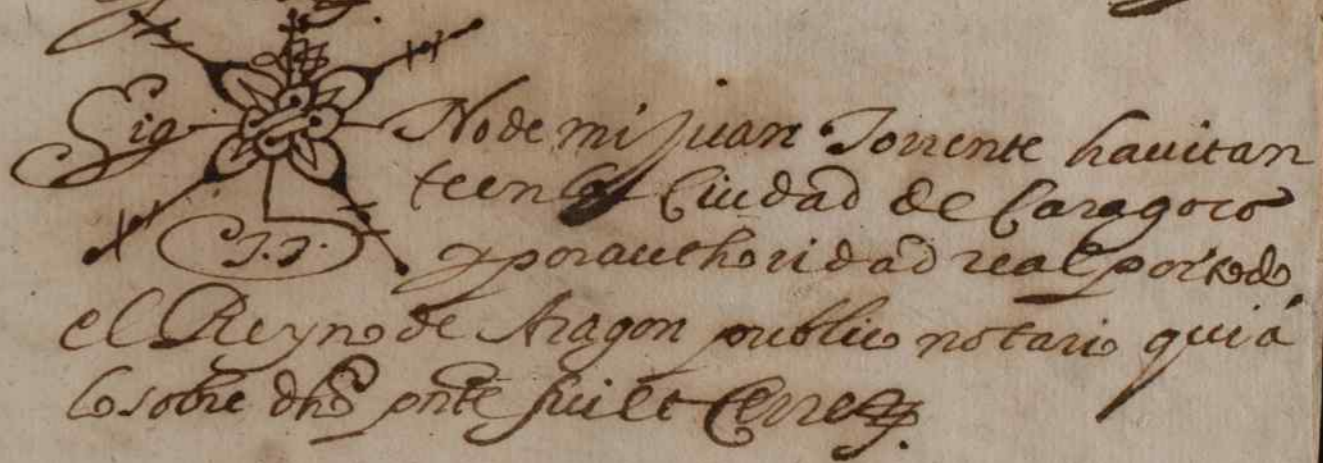 Sig No de mi Juan Torrente hauitan
te en la Ciudad de Caragoca
J.T. y por authoridad real por todo
el Reyno de Aragon publico notario qui a
lo sobre dho pnte fui et Cerre